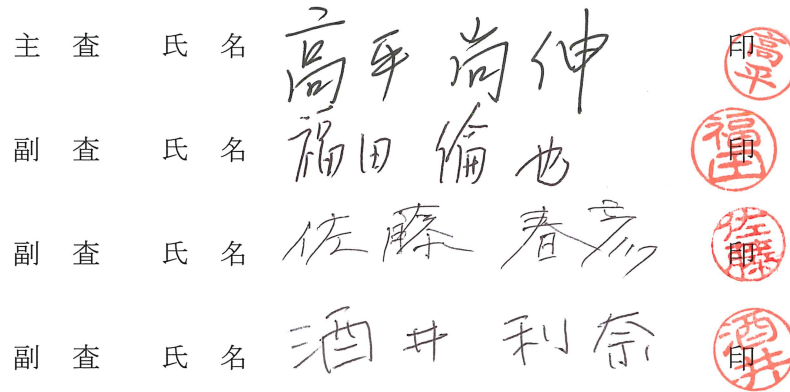 主査 氏名 高平 尚伸 印 高平
副査 氏名 福田 倫也 印 福田
副査 氏名 佐藤 春彦 印 佐藤
副査 氏名 酒井 利奈 印 酒井